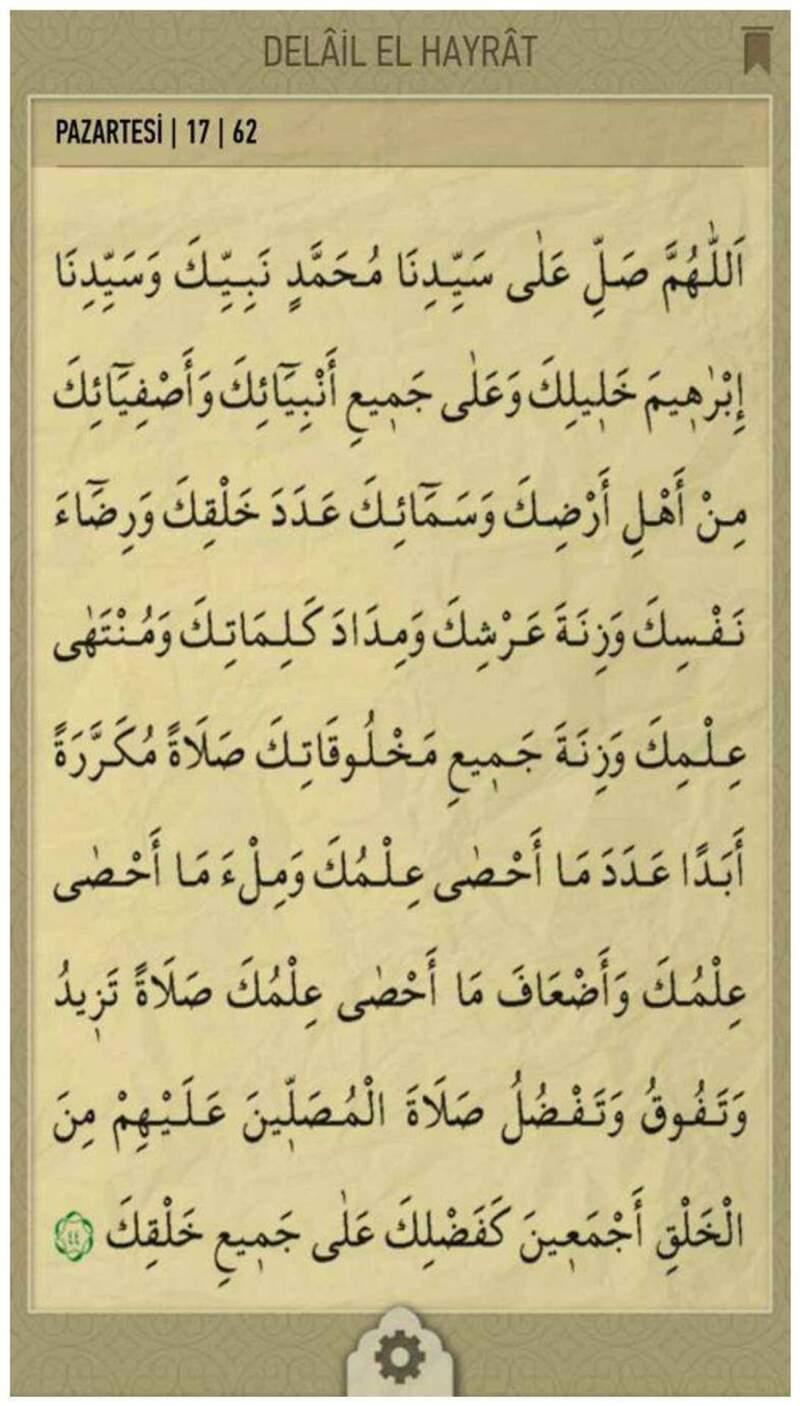 DELÂİL EL HAYRÂT
PAZARTESİ | 17 | 62
اَللّٰهُمَّ صَلِّ عَلٰى سَيِّدِنَا مُحَمَّدٍ نَبِيِّكَ وَسَيِّدِنَا
إِبْرٰهِيمَ خَلِيلِكَ وَعَلٰى جَمِيعِ أَنْبِيَٓائِكَ وَأَصْفِيَٓائِكَ
مِنْ أَهْلِ أَرْضِكَ وَسَمَٓائِكَ عَدَدَ خَلْقِكَ وَرِضَٓاءَ
نَفْسِكَ وَزِنَةَ عَرْشِكَ وَمِدَادَ كَلِمَاتِكَ وَمُنْتَهٰى
عِلْمِكَ وَزِنَةَ جَمِيعِ مَخْلُوقَاتِكَ صَلَاةً مُكَرَّرَةً
أَبَدًا عَدَدَ مَا أَحْصٰى عِلْمُكَ وَمِلْءَ مَا أَحْصٰى
عِلْمُكَ وَأَضْعَافَ مَا أَحْصٰى عِلْمُكَ صَلَاةً تَزِيدُ
وَتَفُوقُ وَتَفْضُلُ صَلَاةَ الْمُصَلِّينَ عَلَيْهِمْ مِنَ
الْخَلْقِ أَجْمَعِينَ كَفَضْلِكَ عَلٰى جَمِيعِ خَلْقِكَ ٤٤